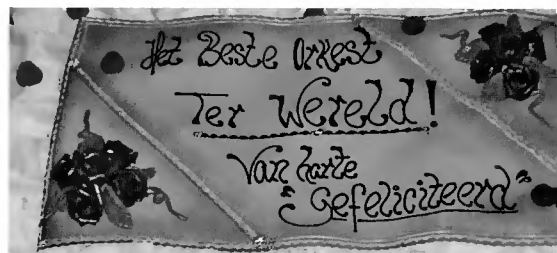 Het Beste Orkest
Ter Wereld!
Van harte
"Gefeliciteerd"